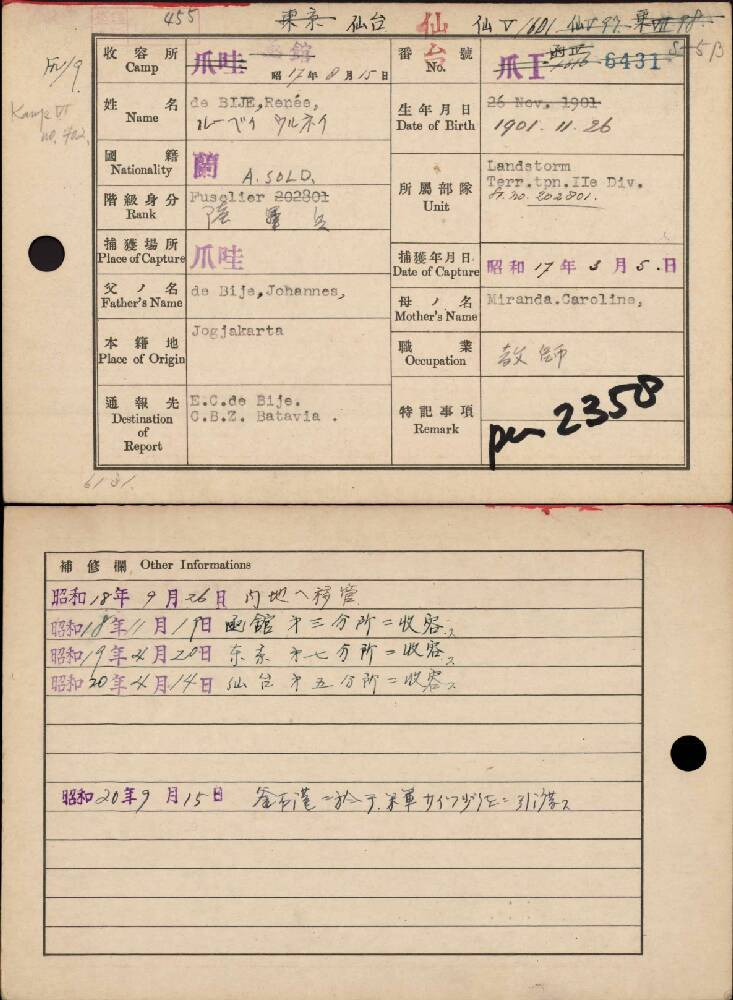 455 東京 仙台 仙台 仙V/601 仙V97
Kamp VI
no. 702
收容所
Camp
爪哇 函館
昭17年8月15日
番號
No.
爪I 6431
姓名
Name
de BIJE, Renée,
生年月日
Date of Birth
26 Nov. 1901
1901. 11. 26
國籍
Nationality
蘭
A. SOLD.
階級身分
Rank
Fuselier 202801
所屬部隊
Unit
Landstorm
Terr.tpn.IIe Div.
St. no. 202801.
捕獲場所
Place of Capture
爪哇
捕獲年月日
Date of Capture
昭和17年3月5.日
父ノ名
Father's Name
de Bije, Johannes,
母ノ名
Mother's Name
Miranda.Caroline,
本籍地
Place of Origin
Jogjakarta
職業
Occupation
教師
通報先
Destination
of
Report
E.C.de Bije.
C.B.Z. Batavia .
特記事項
Remark
2358
6181.
補修欄 Other Informations
昭和18年9月26日 内地ヘ移管
昭和18年11月19日 函館第三分所ニ收容ス
昭和19年4月20日 东京第七分所ニ收容ス
昭和20年4月14日 仙台第五分所ニ收容ス
昭和20年9月15日 釜石港ニ於テ米軍